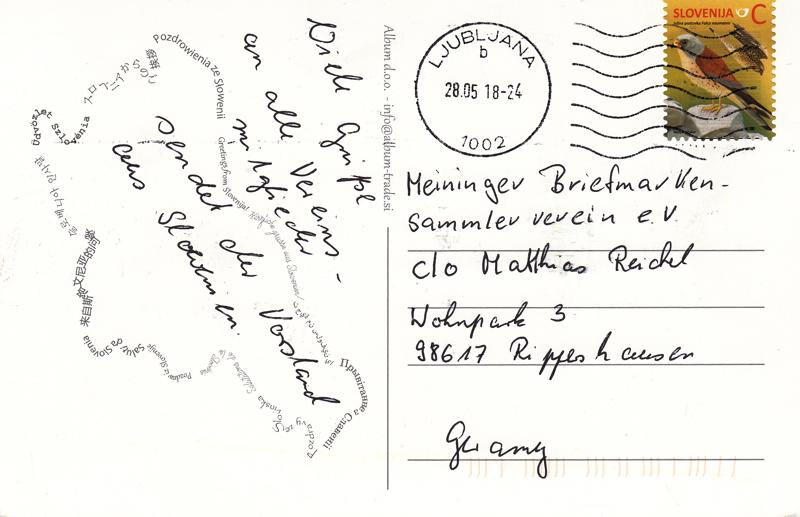 Viele Grüße
an alle Vereins-
mitglieder
sendet der Vorstand
aus Slowenien.
Pozdrowienia ze Słowenii
スロベニアからの
Üdvözlet Szlovénia
来自斯洛文尼亚的问候
Saluti da Slovenia
Pozdrav iz Slovenije
Pozdravy ze Slovinska
Прывітанне з Славеніі
Greetings from Slovenia!
Herzliche grüsse aus Slowenien!
Album d.o.o. - info@album-trade.si
LJUBLJANA
b
28.05 18-24
1002
SLOVENIJA C
Meininger Briefmarken-
sammlerverein e.V.
c/o Matthias Reichel
Wohnpark 3
98617 Rippershausen
Germany